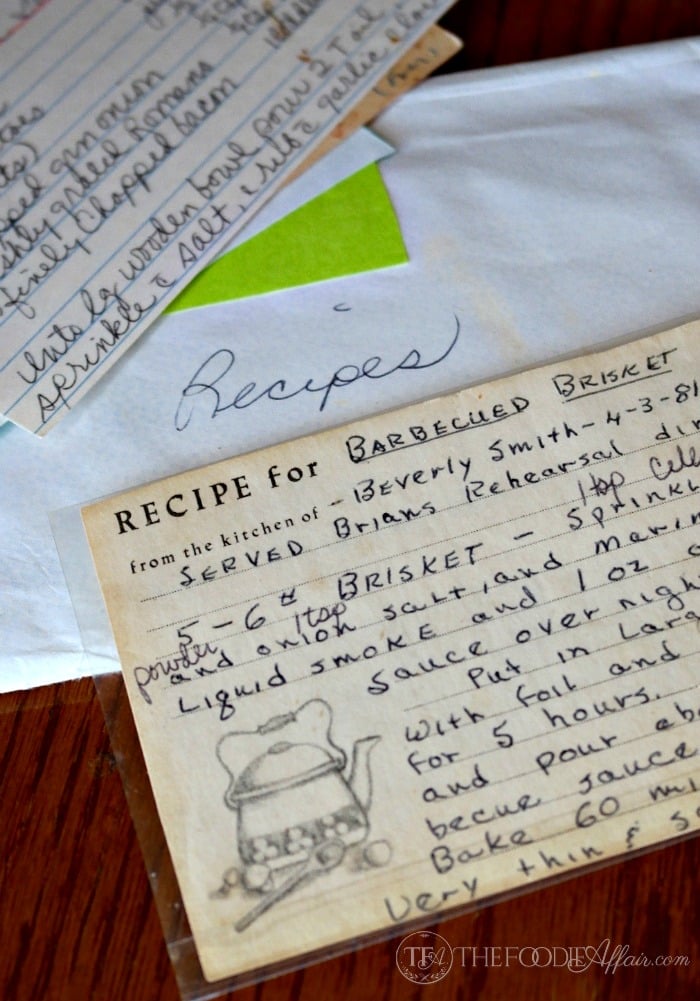 onion
grated Romano
finely chopped bacon
Into lg wooden bowl pour 2 T oil
sprinkle c salt, & rub c garlic
Recipes
RECIPE for BARBECUED BRISKET
from the kitchen of - Beverly Smith - 4-3-81
SERVED Brians Rehearsal din
1tsp Cele
5-6# BRISKET - Sprinkl
powder 1tsp
and onion salt, and marin
Liquid smoke and 1 oz
sauce over nigh
Put in Larg
with foil and
for 5 hours.
and pour ab
becue sauce
Bake 60 mi
very thin & s
TFA THEFOODIEAFFAIR.com